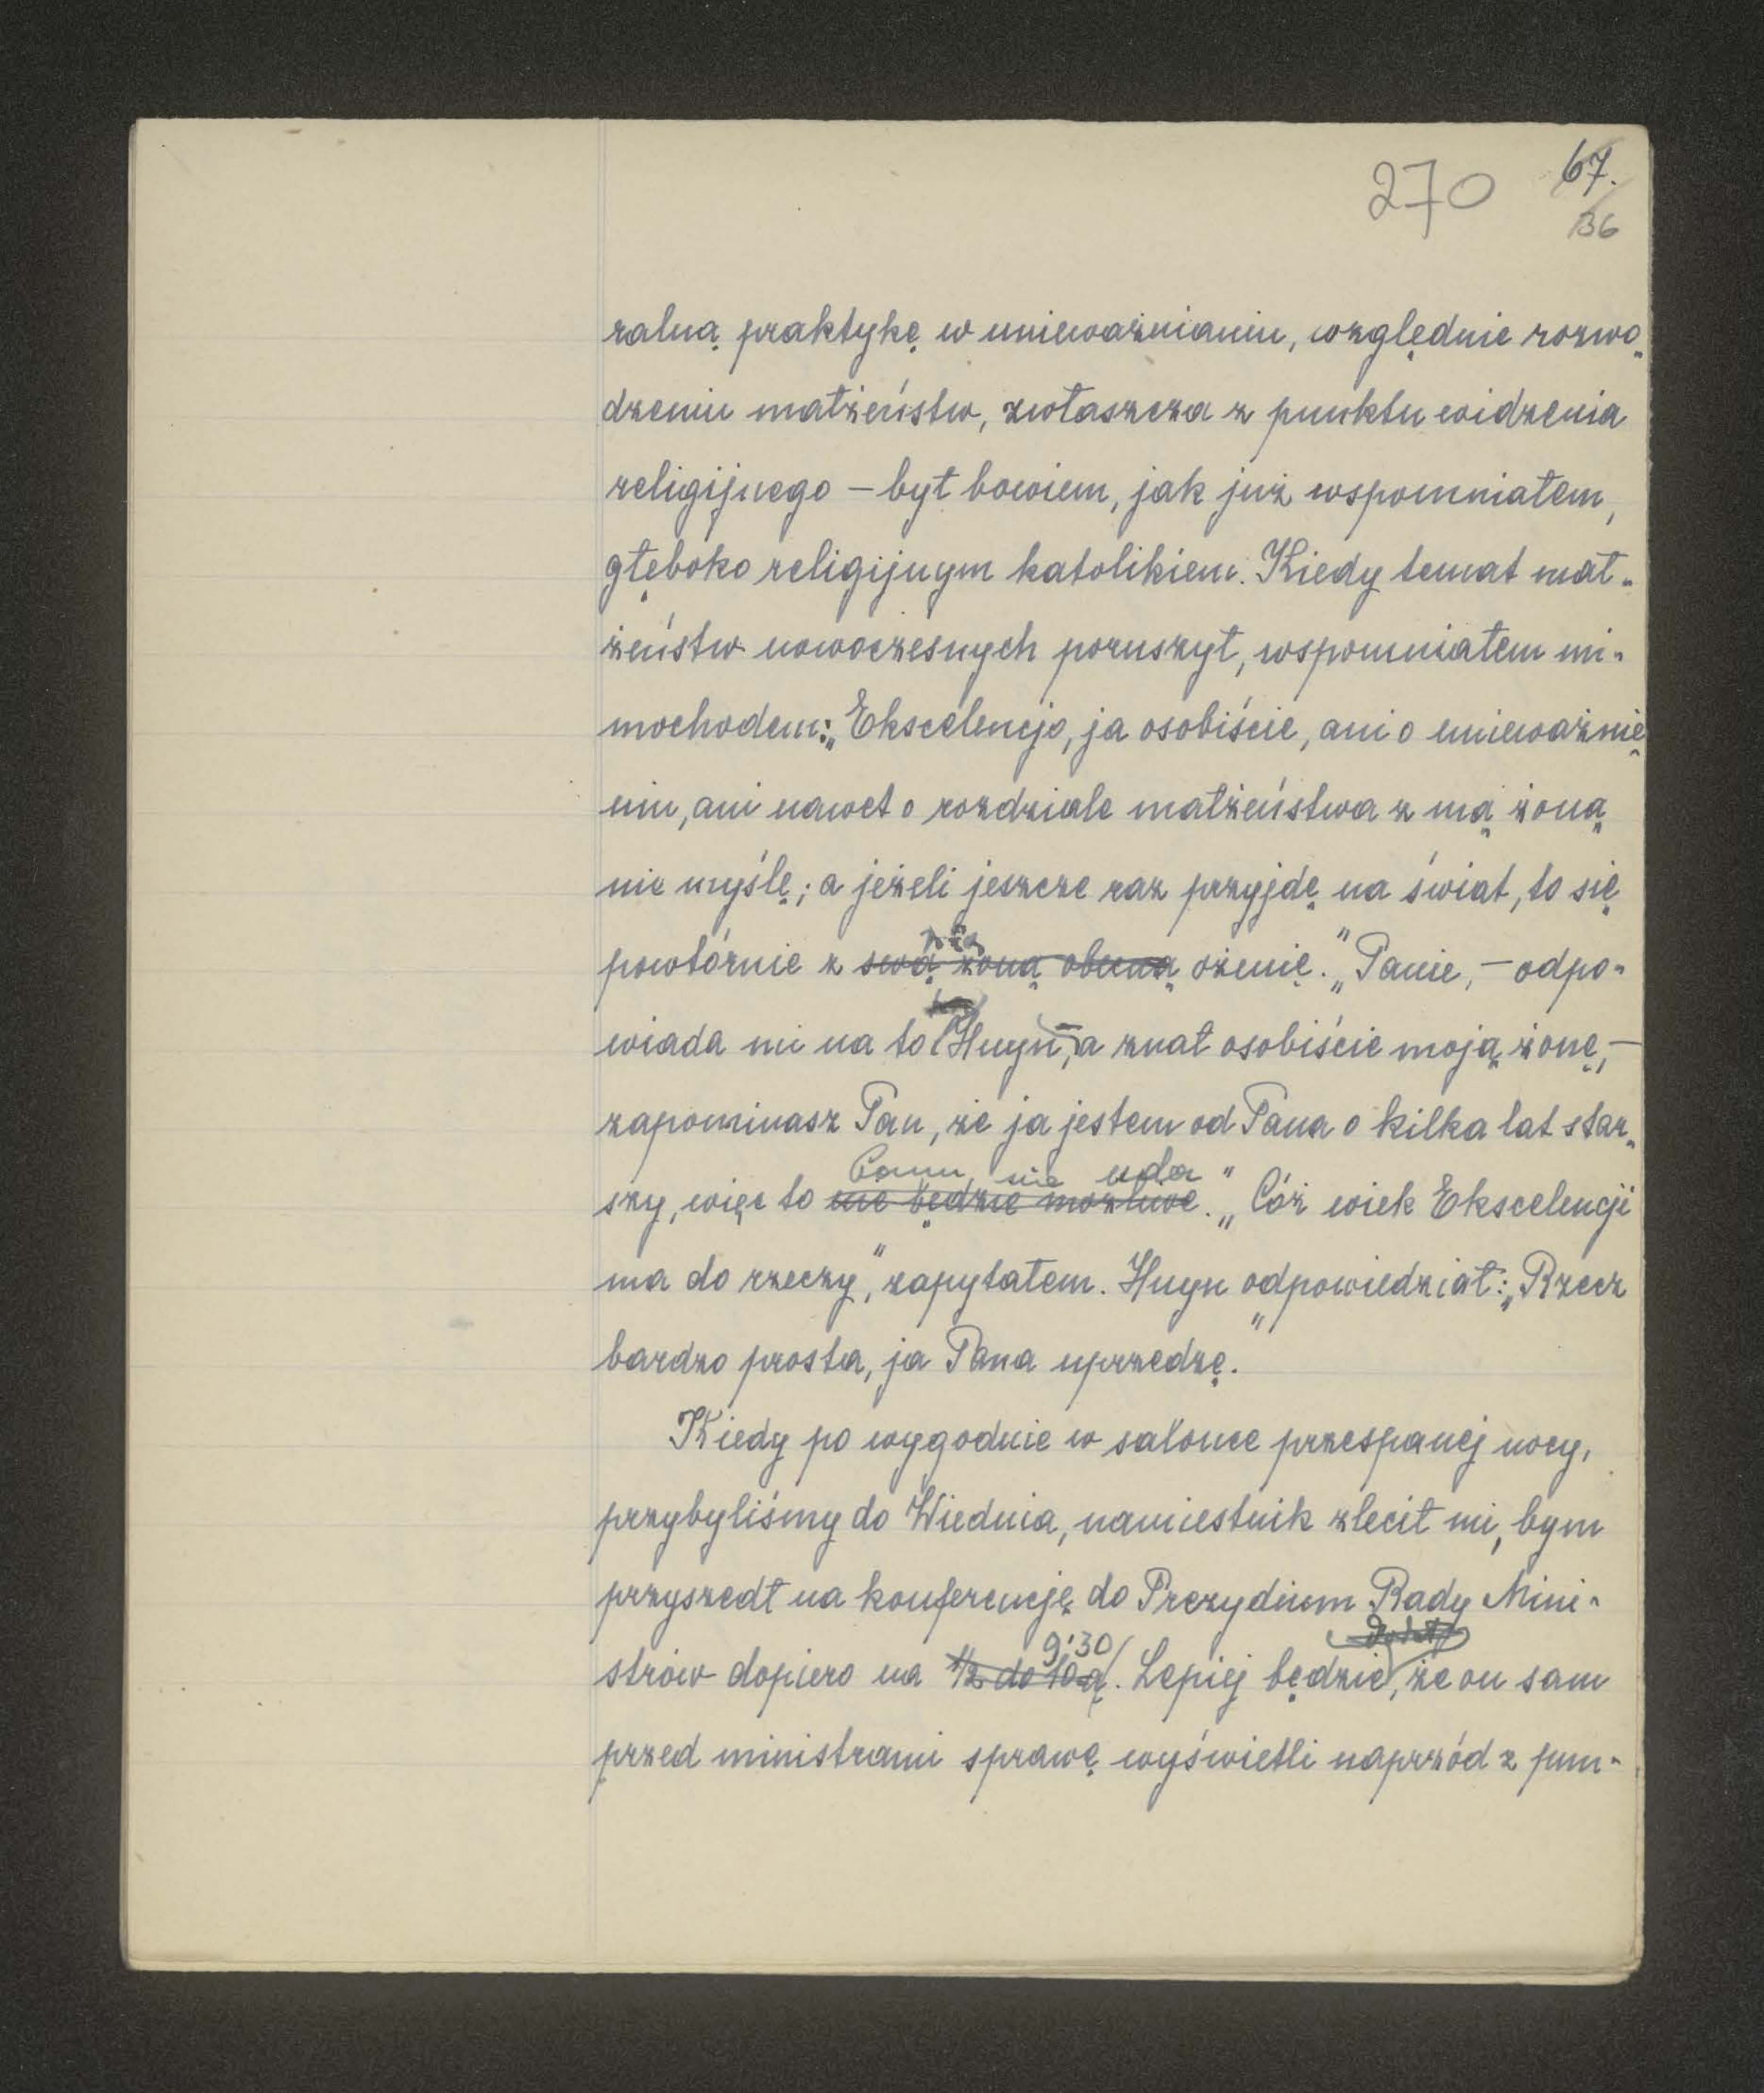 270 67.
136
ralną praktykę w unieważnianiu, względnie rozwo„
dzeniu małżeństw, zwłaszcza z punktu widzenia
religijnego – był bowiem, jak już wspomniałem,
głęboko religijnym katolikiem. Kiedy temat mał„
żeństw nowoczesnych poruszył, wspomniałem mi„
mochodem: „Ekscelencjo, ja osobiście, ani o unieważnie„
niu, ani nawet o rozdziale małżeństwa z mą żoną
nie myślę; a jeżeli jeszcze raz przyjdę na świat, to się
nią
powtórnie z swą żoną obecną ożenię." „Panie, – odpo„
wiada mi na to Huyn, – a znał osobiście moją żonę, –
zapominasz Pan, że ja jestem od Pana o kilka lat star„
Panu nie uda
szy, więc to nie będzie możliwe." „Cóż wiek Ekscelencji
ma do rzeczy", zapytałem. Huyn odpowiedział: „Rzecz
bardzo prosta, ja Pana uprzedzę."
Kiedy po wygodnie w salonce przespanej nocy,
przybyliśmy do Wiednia, namiestnik zlecił mi, bym
przyszedł na konferencję do Prezydium Rady Mini„
9:30
strów dopiero na ½ do 10ą. Lepiej będzie, że on sam
przed ministrami sprawę wyświetli naprzód z pun„